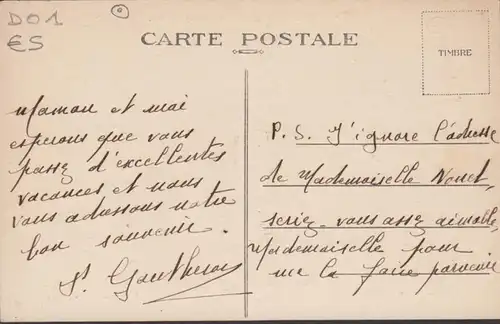 D01
ES
CARTE POSTALE
TIMBRE
Maman et moi
espérons que vous
passez d'excellentes
vacances et nous
vous adressons notre
bon souvenir.
P. S. J'ignore l'adresse
de Mademoiselle
seriez-vous assez aimable,
Mademoiselle pour
me la faire parvenir